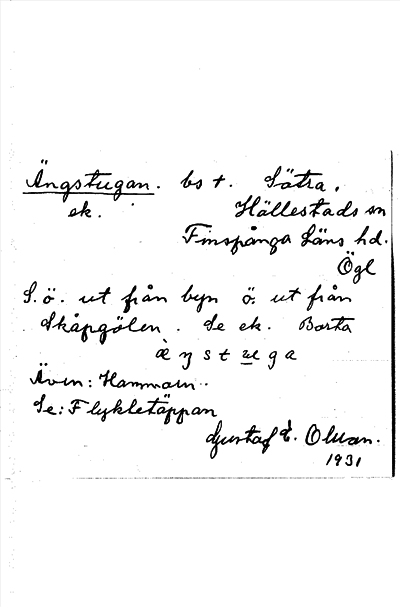 Ängstugan. bst. Sätra,
ek. Hällestads sn
Finspånga Läns hd.
Ögl
S.ö. ut från byn ö. ut från
Skåpgölen. Se ek. Borta
Även: Hammarn.
Se: Flykletäppan
Gustaf E. Olsson.
1931